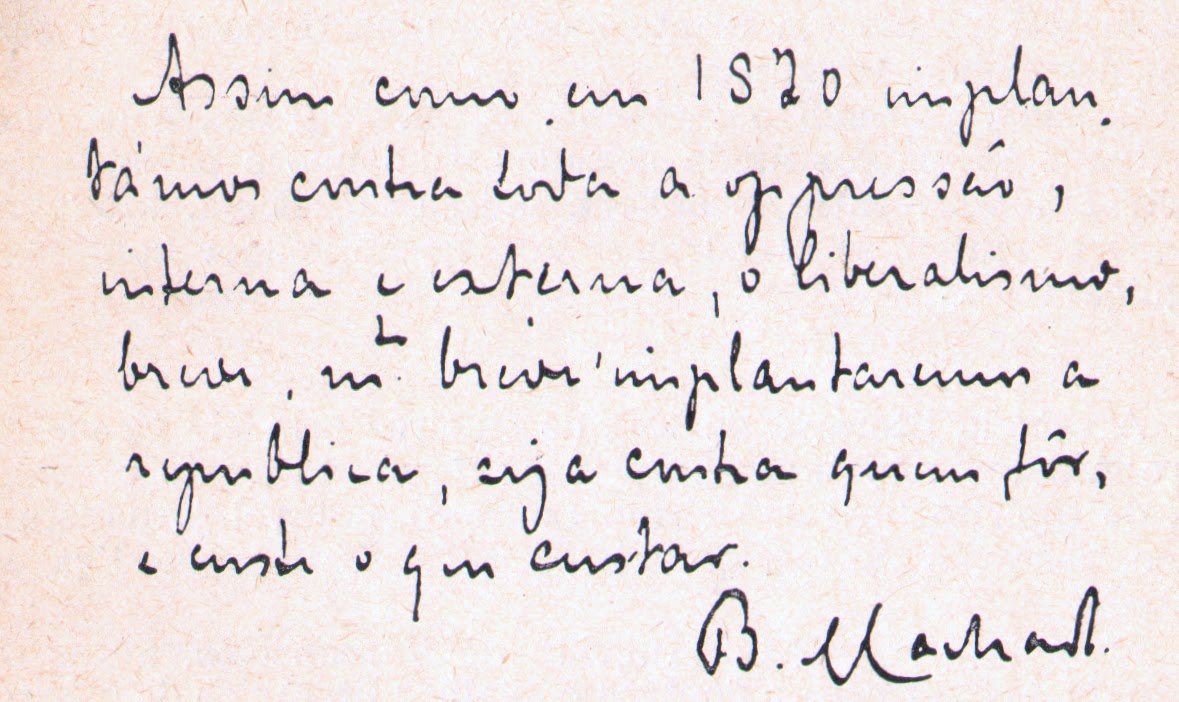 Assim como em 1820 implan-
támos contra toda a oppressão,
interna e externa, o liberalismo,
breve, m.to breve implantaremos a
republica, seja contra quem fôr,
e custe o que custar.
B. Machado.